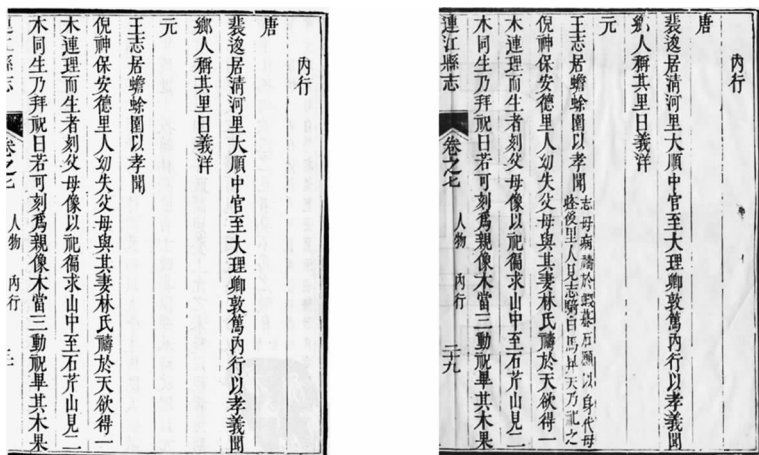 內行
唐
裴逡居清河里大順中官至大理卿敦篤內行以孝義聞
鄉人稱其里曰義洋
元
王志居蟾蜍圍以孝聞
倪神保安德里人幼失父母與其妻林氏禱於天欲得一
木連理而生者刻父母像以祀徧求山中至石芹山見二
木同生乃拜祝曰若可刻爲親像木當三動祝畢其木果
連江縣志 卷之七 人物 內行
內行
唐
裴逡居清河里大順中官至大理卿敦篤內行以孝義聞
鄉人稱其里曰義洋
元
王志居蟾蜍圍以孝聞
志母病禱於蝦蟇石願以身代母
痊後里人見志騎白馬昇天乃祀之
倪神保安德里人幼失父母與其妻林氏禱於天欲得一
木連理而生者刻父母像以祀徧求山中至石芹山見二
木同生乃拜祝曰若可刻爲親像木當三動祝畢其木果
連江縣志 卷之七 人物 內行 二十九